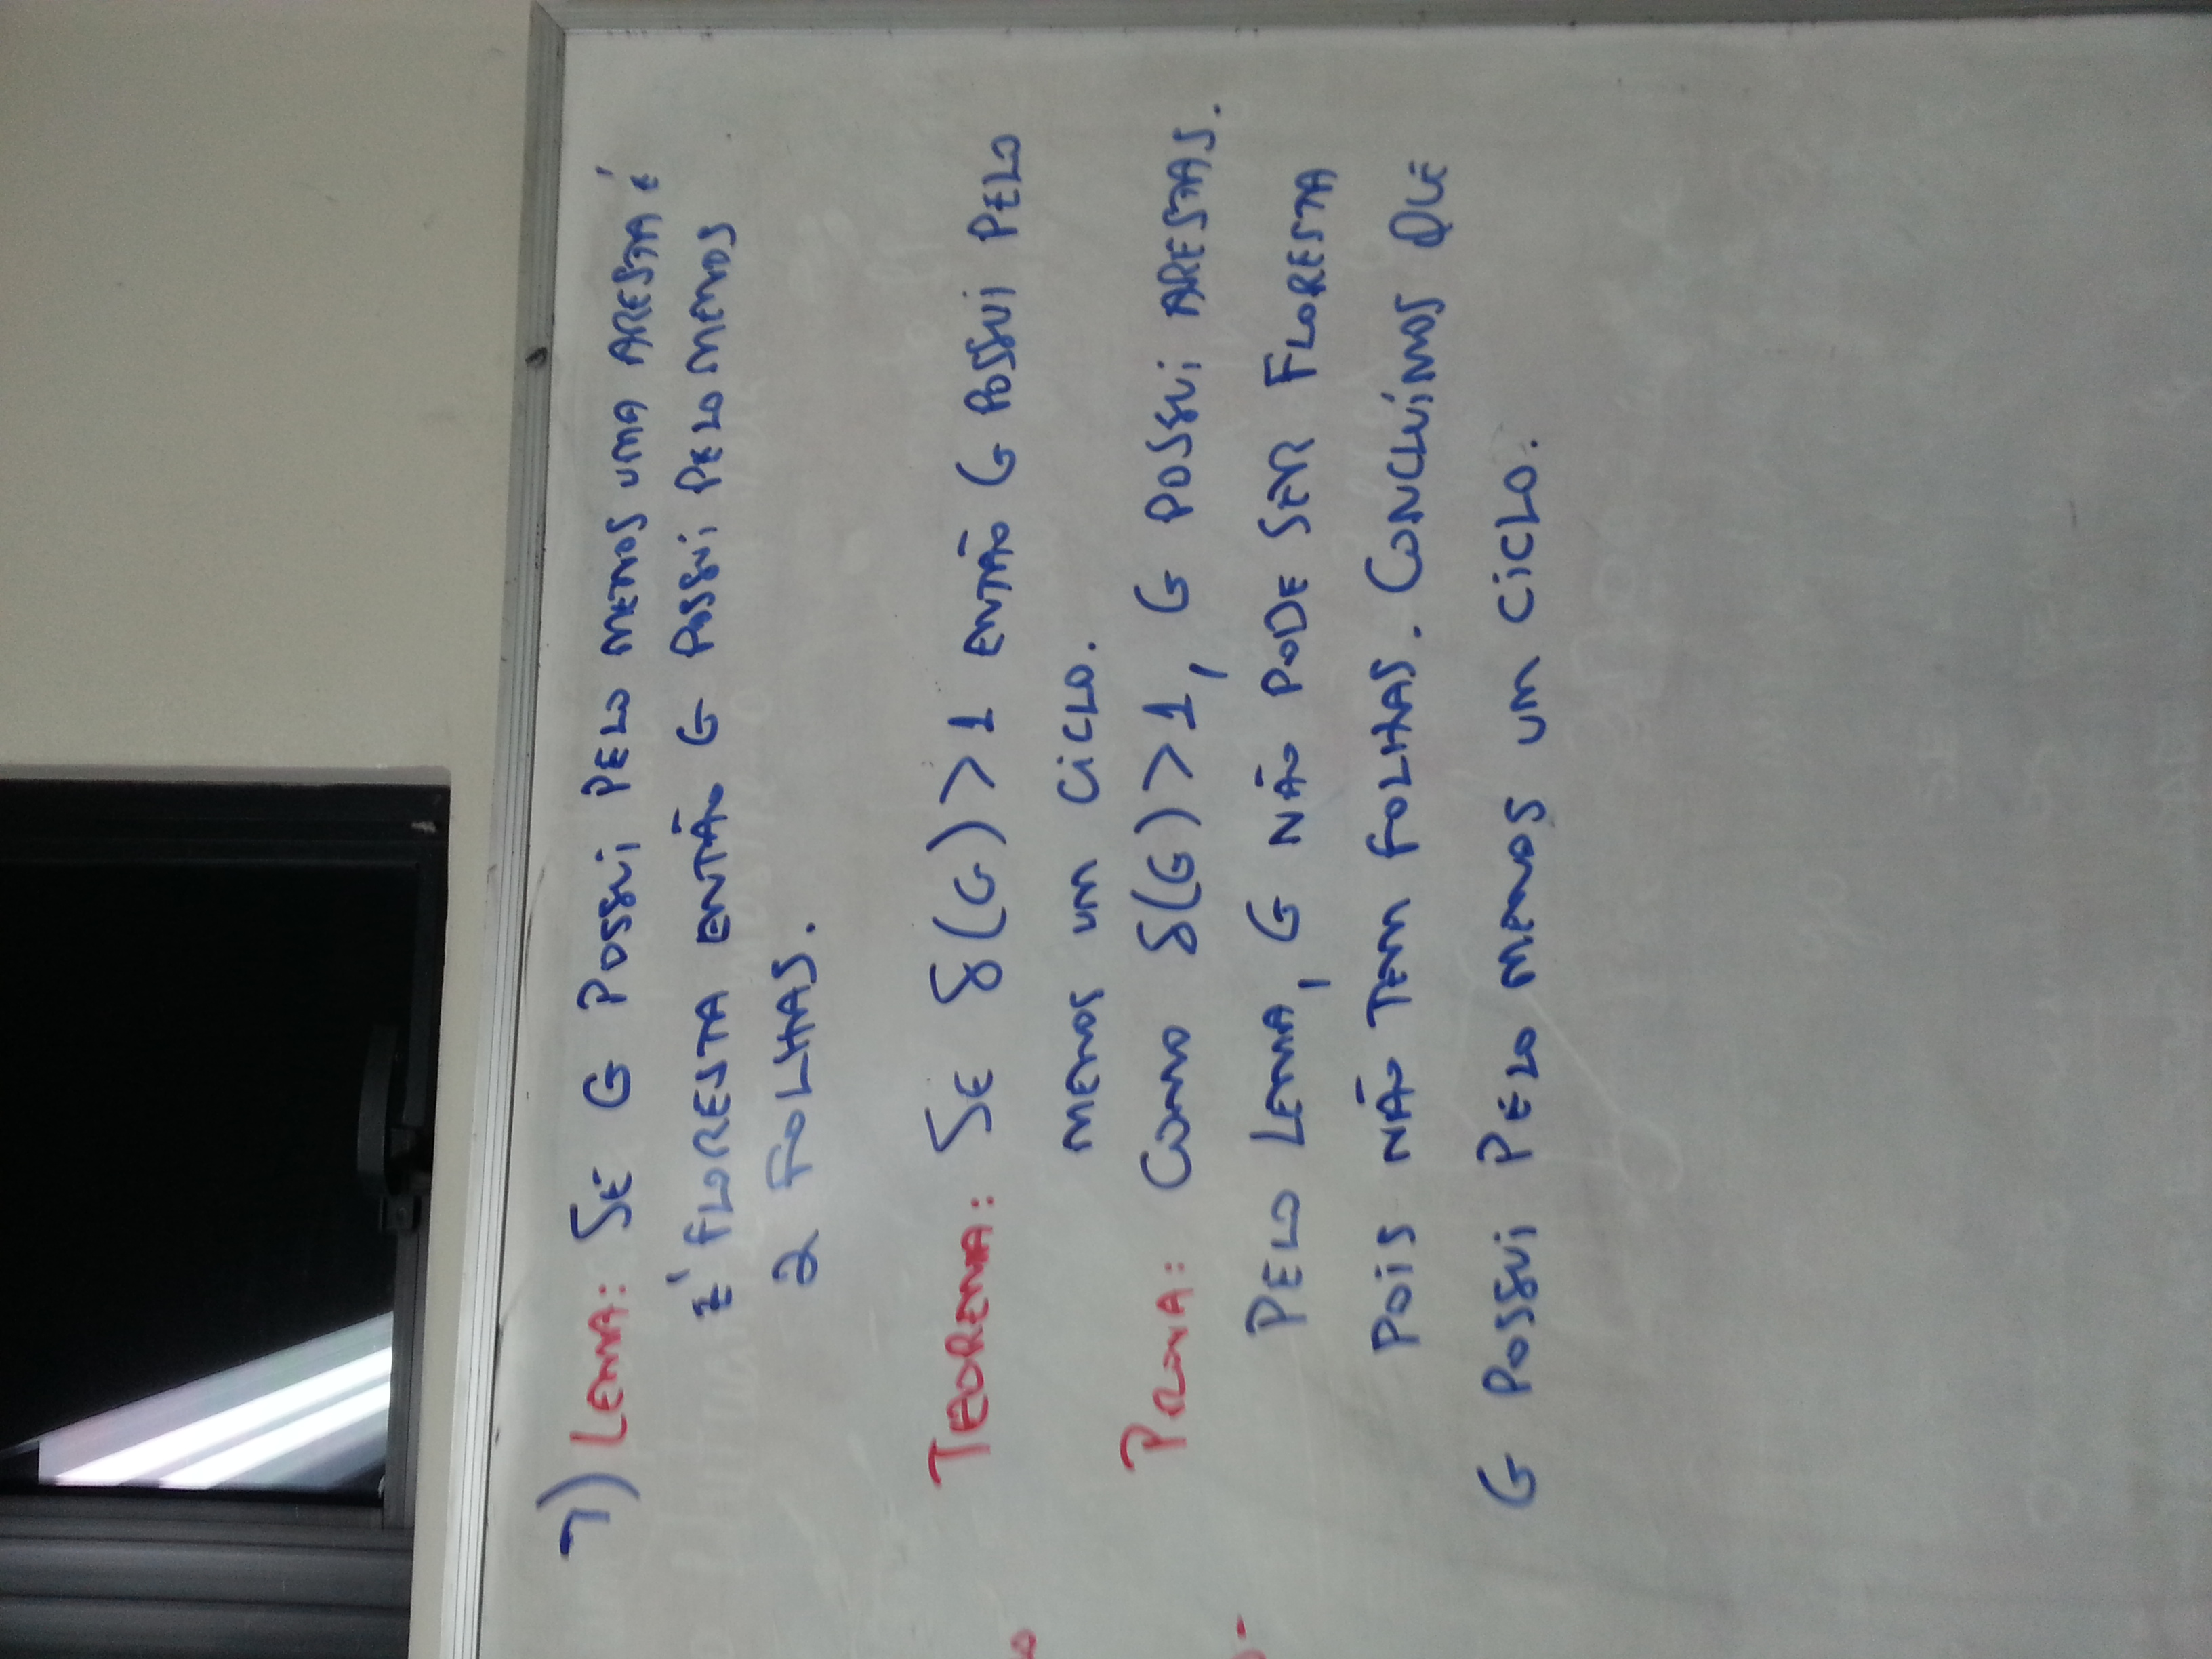 7) LEMA: SE G POSSUI PELO MENOS UMA ARESTA É
É FLORESTA ENTÃO G POSSUI PELO MENOS
2 FOLHAS.
TEOREMA: SE δ(G) > 1 ENTÃO G POSSUI PELO
MENOS UM CICLO.
PROVA: COMO δ(G) > 1, G POSSUI ARESTAS.
PELO LEMA, G NÃO PODE SER FLORESTA
POIS NÃO TEM FOLHAS. CONCLUÍMOS QUE
G POSSUI PELO MENOS UM CICLO.